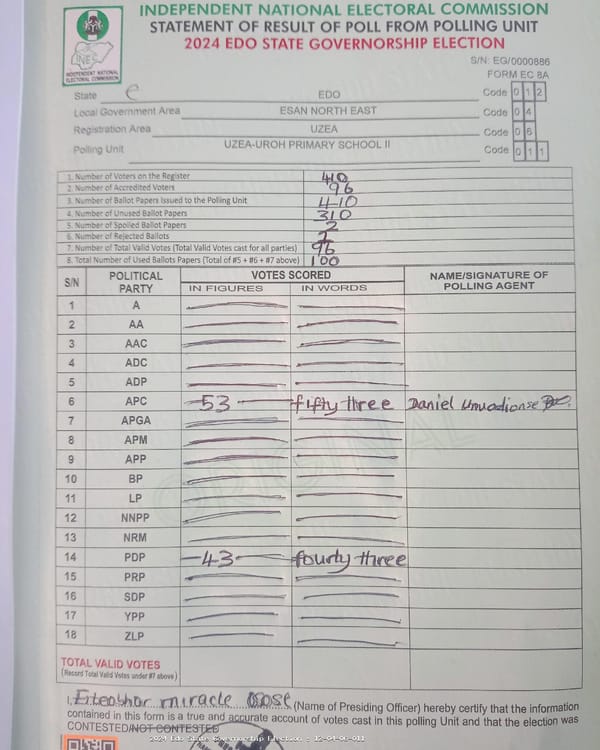 INDEPENDENT NATIONAL ELECTORAL COMMISSION
STATEMENT OF RESULT OF POLL FROM POLLING UNIT
2024 EDO STATE GOVERNORSHIP ELECTION
INEC
INDEPENDENT NATIONAL ELECTORAL COMMISSION
S/N: EG/0000886
FORM EC 8A
State e EDO Code 0 1 2
Local Government Area ESAN NORTH EAST Code 0 4
Registration Area UZEA Code 0 6
Polling Unit UZEA-UROH PRIMARY SCHOOL II Code 0 1 1
1. Number of Voters on the Register 410
2. Number of Accredited Voters 96
3. Number of Ballot Papers Issued to the Polling Unit 410
4. Number of Unused Ballot Papers 310
5. Number of Spoiled Ballot Papers 2
6. Number of Rejected Ballots
7. Number of Total Valid Votes (Total Valid Votes cast for all parties) 96
8. Total Number of Used Ballots Papers (Total of #5 + #6 + #7 above) 100
S/N POLITICAL PARTY VOTES SCORED NAME/SIGNATURE OF POLLING AGENT
IN FIGURES IN WORDS
1 A
2 AA
3 AAC
4 ADC
5 ADP
6 APC 53 fifty three Daniel
7 APGA
8 APM
9 APP
10 BP
11 LP
12 NNPP
13 NRM
14 PDP 43 fourty three
15 PRP
16 SDP
17 YPP
18 ZLP
ORIGINAL
TOTAL VALID VOTES
(Record Total Valid Votes under #7 above)
I, miracle (Name of Presiding Officer) hereby certify that the information
contained in this form is a true and accurate account of votes cast in this polling Unit and that the election was
CONTESTED/NOT CONTESTED
2024 Edo State Governorship Election - 12-04-06-011